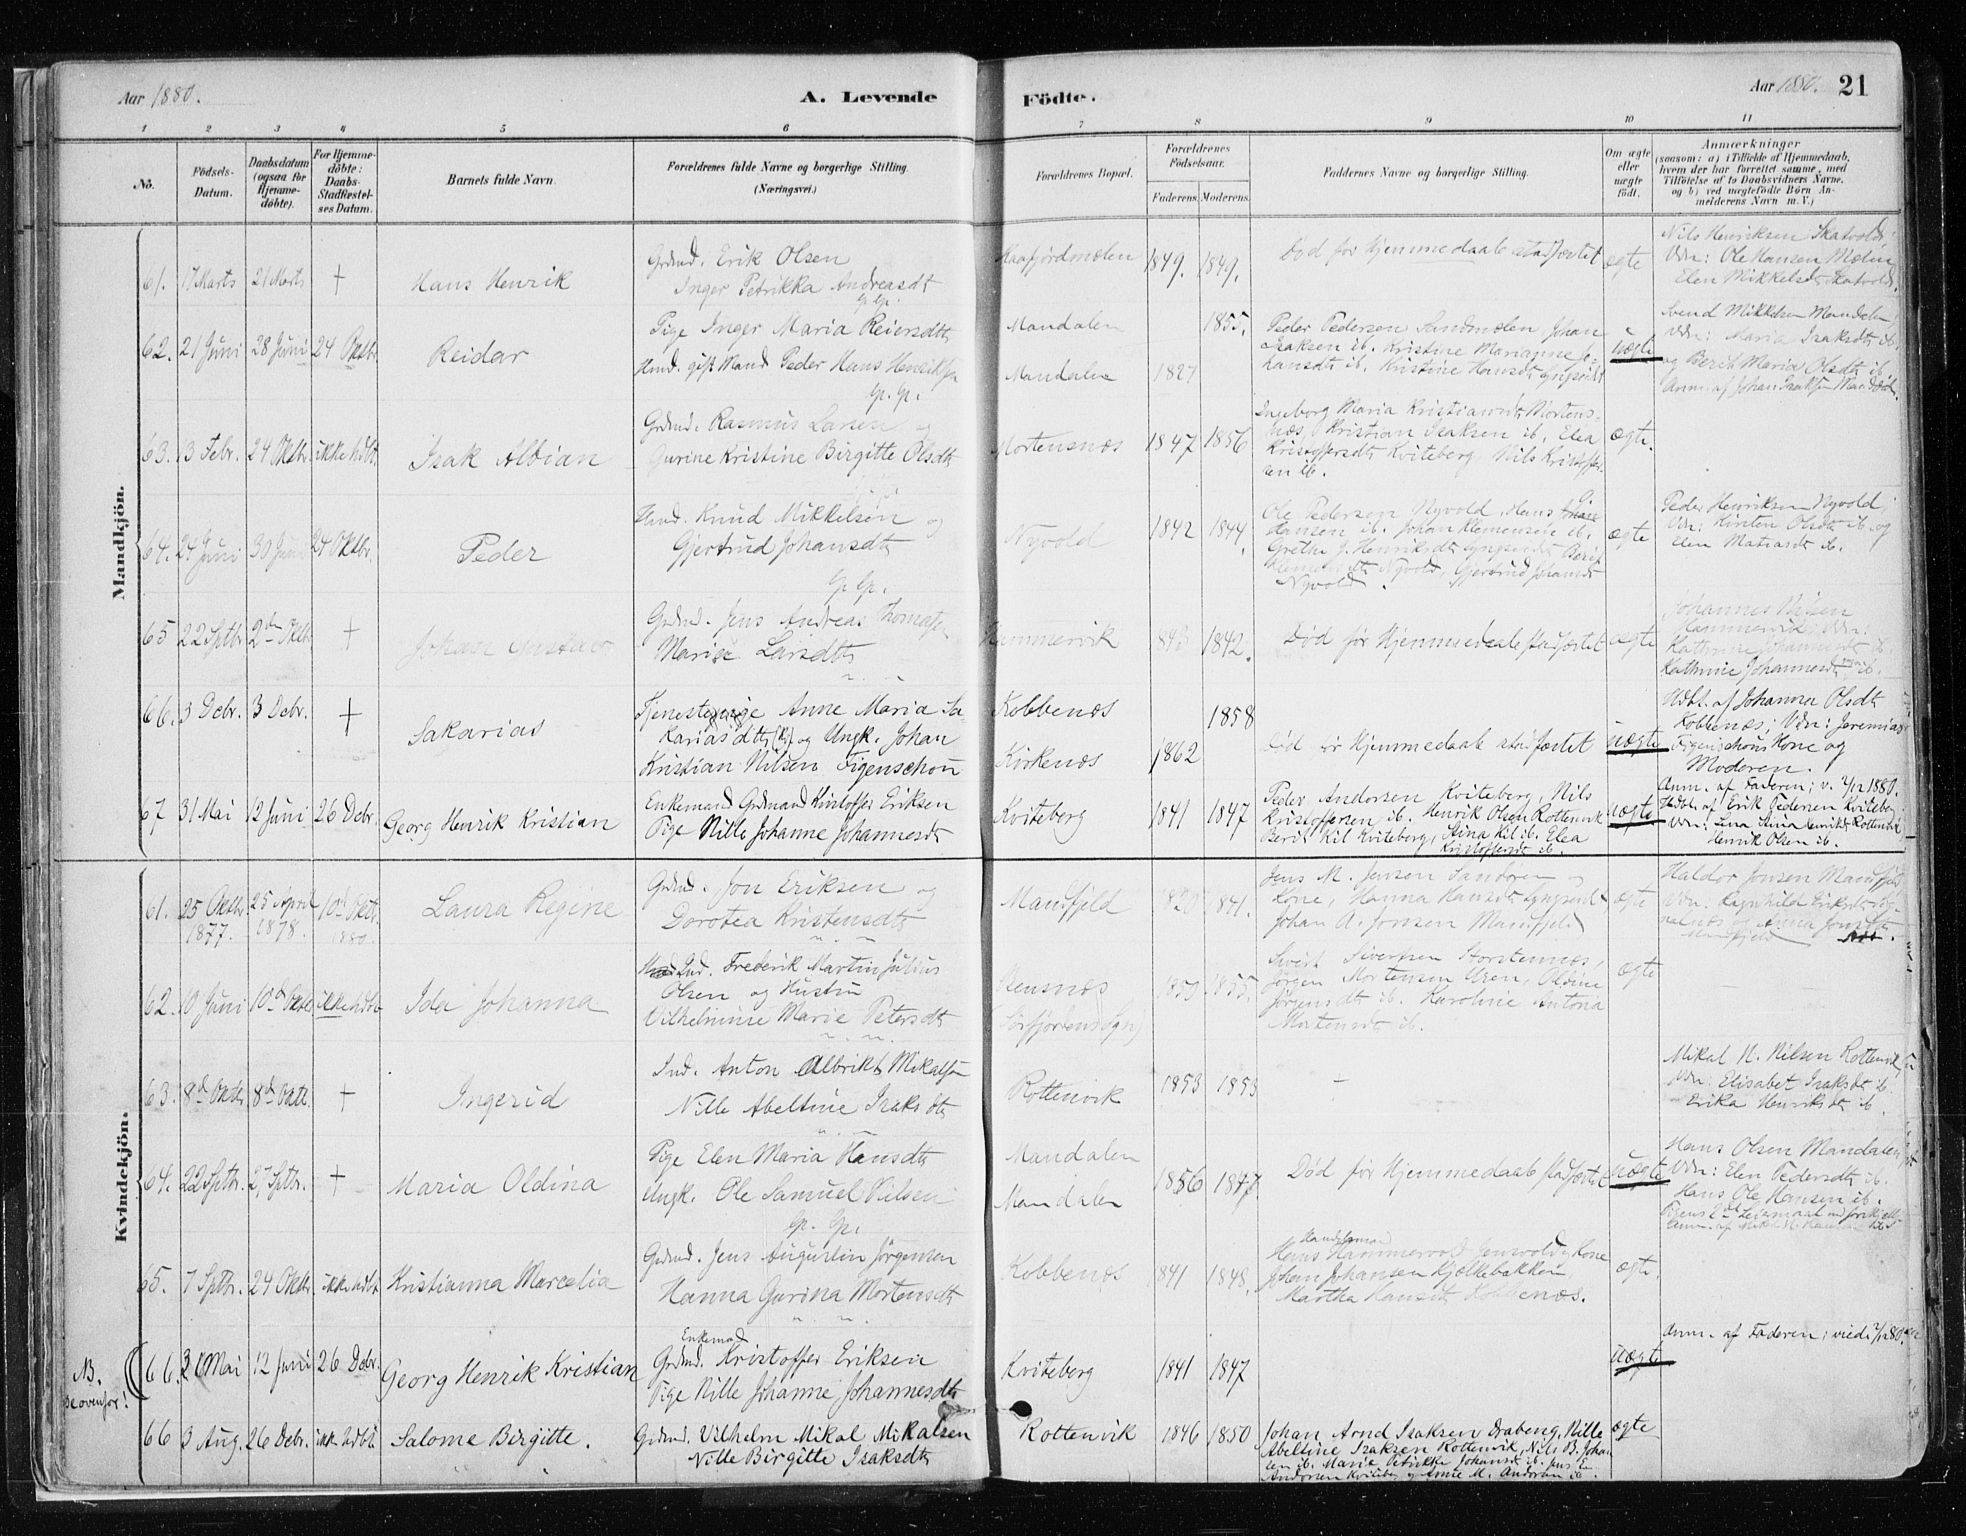 Aar 1880.
A. Levende
Födte.
Aar 1880.
21
1 2 3 4 5 6 7 8 9 10 11
No.
Födsels-
Datum.
Daabsdatum
(ogsaa for
Hjemme-
döbte).
For Hjemme-
döbte:
Daabs-
Stadfæstel-
ses Datum.
Barnets fulde Navn.
Forældrenes fulde Navne og borgerlige Stilling.
(Næringsvei.)
Forældrenes Bopæl.
Forældrenes
Födselsaar.
Faderens. Moderens.
Faddernes Navne og borgerlige Stilling.
Om ægte
eller
uægte
födt.
Anmærkninger
(saasom: a) i Tilfælde af Hjemmedaab,
hvem der har forrettet samme, med
Tilföielse af to Daabsvidners Navne,
og b) ved uægtefödte Börn An-
melderens Navn m. V.)
Mandkjön.
61. 17 Marts 21 Marts + Hans Henrik
Grdmd. Erik Olsen
Inger Petrikka Andreasdt
Kaafjordmælen 1849. 1849.
Död för Hjemmedaab stadfæstet
ægte
Nils Henriksen Skatvold
Vdn: Ole Hansen Mælen
Elen Mikkelsdt Skatvold.
62. 21 Juni 28 Juni 24 Oktbr. Reidar
Pige Inger Maria Reiersdtr
Hmd. gift Mand Peder Hans Henriksen
Gp. Gp.
Mandalen 1855.
Mandalen 1827
Peder Pedersen Sandmælen Johan
Isaksen ib. Kristine Marianne Jo-
hansdt ib. Kristine Hansdt Lyngseidt
uægte
Svend Mikkelsen Mandalen
Vdn: Maria Isaksdt ib.
og Berit Maria Olsdt ib.
Anm. af Johan Isaksen Mandal.
63. 13 Febr. 24 Oktbr. ikke hdbt. Isak Albian
Grdmd. Rasmus Larsen og
Gurine Kristine Birgitte Olsdtr
Mortensnæs 1847 1856
Ingeborg Maria Kristiansdt Mortens-
næs, Kristian Isaksen ib. Elea
Kristoffersdt Kviteberg, Nils Kristoffer-
sen ib.
ægte.
64. 24 Juni 30 Juni 24 Oktbr. Peder
Hmd. Knud Mikkelsen og
Gjertrud Johansdtr
Gp. Gp.
Nyvold 1842 1844.
Ole Pedersen Nyvold, Hans
Hansen ib. Johan Klemensen ib.
Grethe J. Henriksdt Lyngseidt Berit
Klemetsdt Nyvold, Gjertrud Johansdt
Nyvold.
ægte
Peder Henriksen Nyvold,
Vdn: Kirsten Olsdt ib. og
Elen Matiasdt ib.
65 22 Sptbr. 2den Oktbr. + Johan Gustav
Grdmd. Jens Andreas Thomasen
Marie Larsdtr
Hammervik 1843 1842.
Död för Hjemmedaab stadfæstet
ægte
Johannes Nilsen
Hammervik Vdn:
Kathrine Johannesdt ib.
Kathrine Johannesdt ib.
66. 3 Debr. 3 Debr. + Sakarias
Tjenestepige Anne Maria Sa-
kariasdtr og Ungk. Johan
Kristian Nilsen Figenschou
Kobbenæs 1858
Kirkenæs 1862
Död för Hjemmedaab stadfæstet
uægte
Hdbt. af Johanna Olsdt
Kobbenæs; Vdn: Jeremias
Figenschous Kone og
Moderen.
67 31 Mai 12 Juni 26 Debr. Georg Henrik Kristian
Enkemand Grdmand Kristoffer Eriksen
Pige Nille Johanne Johannesdt
Kviteberg 1841 1847
Peder Andersen Kviteberg, Nils
Kristoffersen ib. Henrik Olsen Rottenvik
Berit Kil Kviteberg, Aina Kil ib. Elea
Kristoffersdt ib.
uægte
Anm. af Faderen; v. 7/12 1880.
Hdbt. af Erik Pedersen Kviteberg
Vdn: Lina Aina Henriksdt Rottenvik
Henrik Olsen ib.
Kvindekjön.
61. 25 Oktbr. 1877. 25 April 1878. 10d Oktbr. 1880. Laura Regine
Grdmd. Jon Eriksen og
Dorotea Kristensdtr
Mansfjeld 1841.
Jens M. Jensen Sandören og
Kone, Hanna Hansdt Lyngseidt
Johan A. Jonsen Mansfjeld
ægte
Haldor Jonsen Mansfjeld
Vdn: Ragnhild Eriksdt
og Anna Jonsdt
Mansfjeld
62. 10 Juni 10d Oktbr. ikke hdbt. Ida Johanna
Ind. Frederik Martin Julius
Olsen og Hustru
Vilhelmine Marie Petersdtr
(Sörfjordens Sogn) 1855.
Sivert Sivertsen Storstennæs,
Jörgen Mortensen Uren, Oldine
Jörgensdt ib. Karoline Antona
Mortensdt ib.
ægte
63. 8d Oktbr. 8d Oktbr. + Ingerid
Ind. Anton Albrikt Mikalsen
Nille Abeltine Isaksdtr
Rottenvik 1853 1853
Mikal N. Nilsen Rottenvik
Vdn: Elisabet Isaksdt ib.
Erika Henriksdt ib.
64. 22 Sptbr. 27 Sptbr. + Maria Oldina
Pige Elen Maria Hansdtr
Ungk. Ole Samuel Nilsen
Gp. Gp.
Mandalen
Mandalen 1856 1847
Död för Hjemmedaab stadfæstet
uægte
Hans Olsen Mandalen,
Vdn: Elen Pedersdt ib.
Hans Ole Hansen ib.
Pigens 2det Leiermaal
65. 7 Sptbr. 24 Oktbr. ikke hdbt. Kristianna Marcelia
Grdmd. Jens Augustin Jörgensen
Hanna Gurina Mortensdtr
Kobbenæs 1841 1848.
Handelsmand
Hans Hammervold Jensvold, Kone
Johan Johansen Kjælkebakken
Martha Hansdt Kobbenæs.
ægte.
NB.
Se ovenfor!
66. 31 Mai 12 Juni 26 Debr. Georg Henrik Kristian
Enkemad
Grdmd. Kristoffer Eriksen
Pige Nille Johanne Johannesdtr
Kviteberg 1841 1847
uægte
Anm. af Faderen; viede 7/12 80.
66 3 Aug. 26 Debr. ikke hdbt. Salome Birgitte.
Grdmd. Vilhelm Mikal Mikalsen
Nille Birgitte Isaksdtr
Rottenvik 1846 1850
Johan Arnd Isaksen Draberg, Nille
Abeltine Isaksen Rottenvik, Nils B. Johan-
sen ib. Marie Petrikke Johansdt ib. Jens E.
Andersen Kviteberg og Anne M. Andersen ib.
ægte